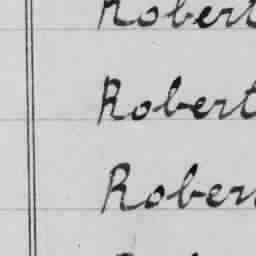 Robert
Robert
Rober